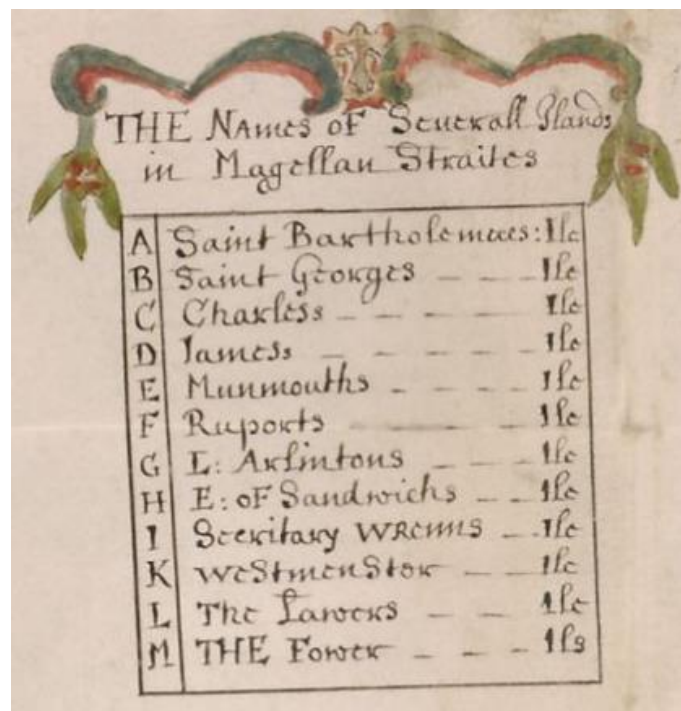 THE NAmes oF Seuerall Ilands
in Magellan Straites
A Saint Bartholemews: Ile
B Saint Georges _ _ _ Ile
C Charless _ _ _ _ _ Ile
D Iamess _ _ _ _ _ Ile
E Munmouths _ _ _ _ Ile
F Ruports _ _ _ _ Ile
G L: Arlintons _ _ _ Ile
H E: oF Sandwichs _ _ Ile
I Seckitary WRENNS _ Ile
K WeStmenStor _ _ Ile
L The Lawers _ _ Ile
M THE Fower _ _ _ Ils